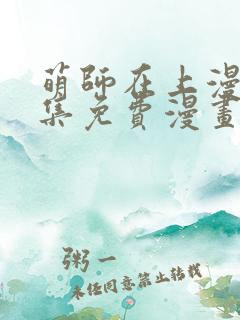 萌師在上漫
集免費漫畫
粥一
未经同意禁止转载